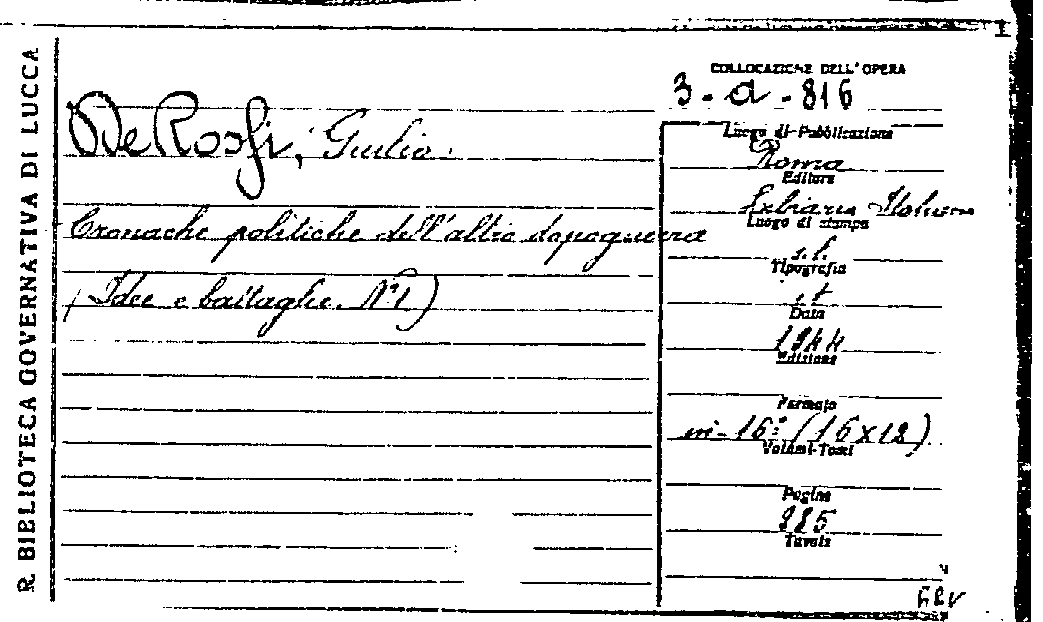 R. BIBLIOTECA GOVERNATIVA DI LUCCA
COLLOCAZIONE DELL'OPERA
3-a-816
De Rossi, Giulio.
Cronache politiche dell'altro dopoguerra
(Idee e battaglie. N°1)
Luogo di Pubblicazione
Roma
Editore
Libraria Italiana
Luogo di stampa
s.l.
Tipografia
s.t
Data
1944
Edizione
Formato
in-16° (16x12)
Volumi-Tomi
Pagine
225
Tavole